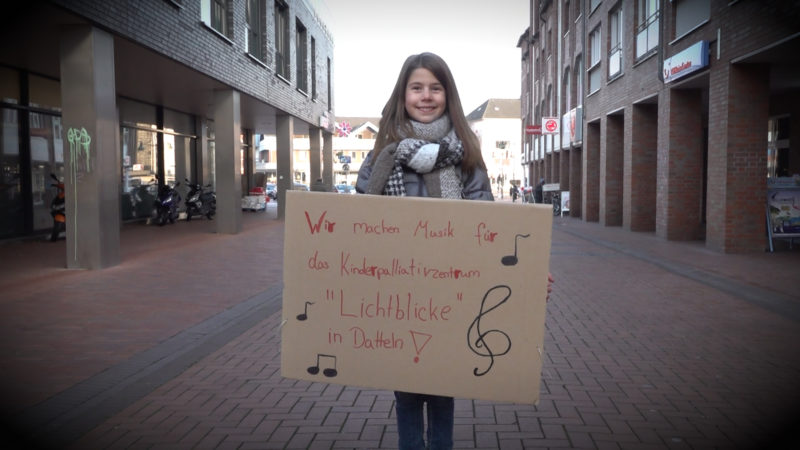 Wir machen Musik für
das Kinderpalliativzentrum
"Lichtblicke"
in Datteln!